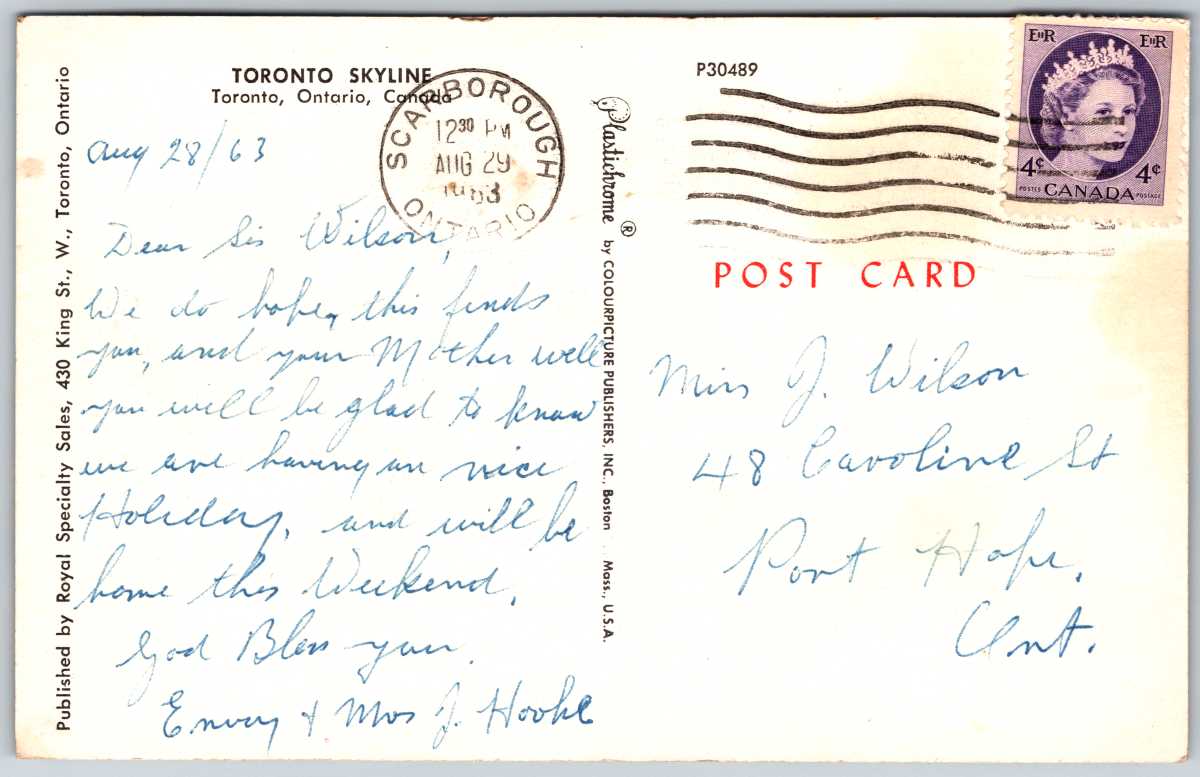 TORONTO SKYLINE
Toronto, Ontario, Canada
Aug 28/63
Dear Sis Wilson,
We do hope, this finds
you, and your Mother well
you will be glad to know
we are having an nice
Holiday, and will be
home this Weekend.
God Bless you.
& Mrs J. Hooke
Published by Royal Specialty Sales, 430 King St., W., Toronto, Ontario
SCARBOROUGH
12 30 PM
AUG 29
1963
ONTARIO
Plastichrome ® by COLOURPICTURE PUBLISHERS, INC., Boston Mass., U.S.A.
P30489
EIIR EIIR
4¢ 4¢
POSTES CANADA POSTAGE
POST CARD
Miss J. Wilson
48 Caroline St
Port Hope,
Ont.